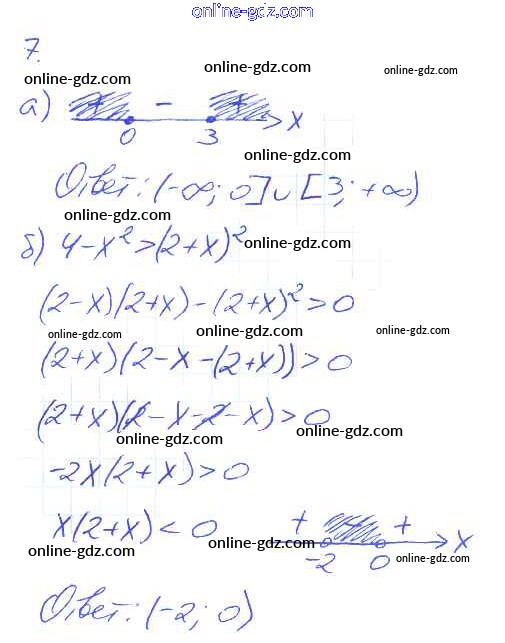 online-gdz.com
7.
online-gdz.com online-gdz.com online-gdz.com
а) + − + x
0 3
online-gdz.com
Ответ: (-∞; 0] ∪ [3; +∞)
online-gdz.com
б) 4-x²>(2+x)² online-gdz.com
(2-x)(2+x)-(2+x)²>0
online-gdz.com online-gdz.com online-gdz.com
(2+x)(2-x-(2+x))>0
(2+x)(2-x-2-x)>0
online-gdz.com online-gdz.com
-2x(2+x)>0
x(2+x)<0 + - + x
online-gdz.com online-gdz.com online-gdz.com
-2 0
Ответ: (-2; 0)